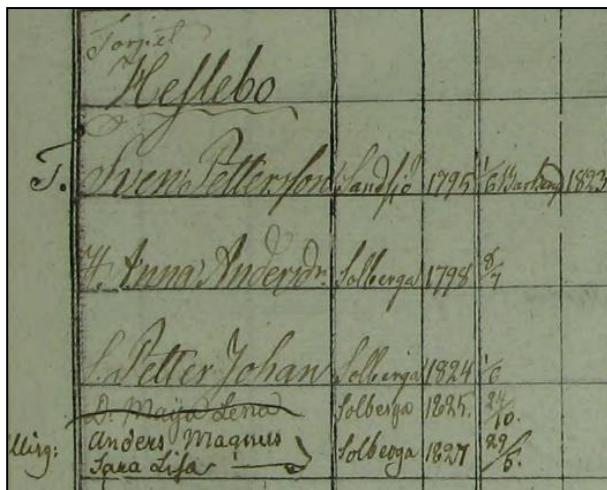 Torpet
Heslebo
T. Sven Petterson Sandsjö 1795 1/6 1823
H. Anna Andersdr. Solberga 1798 8/7
S. Petter Johan Solberga 1824 1/6
D. Maija Lena Solberga 1825. 24/10.
Anders Magnus Solberga 1827 29/5.
Sara Lisa